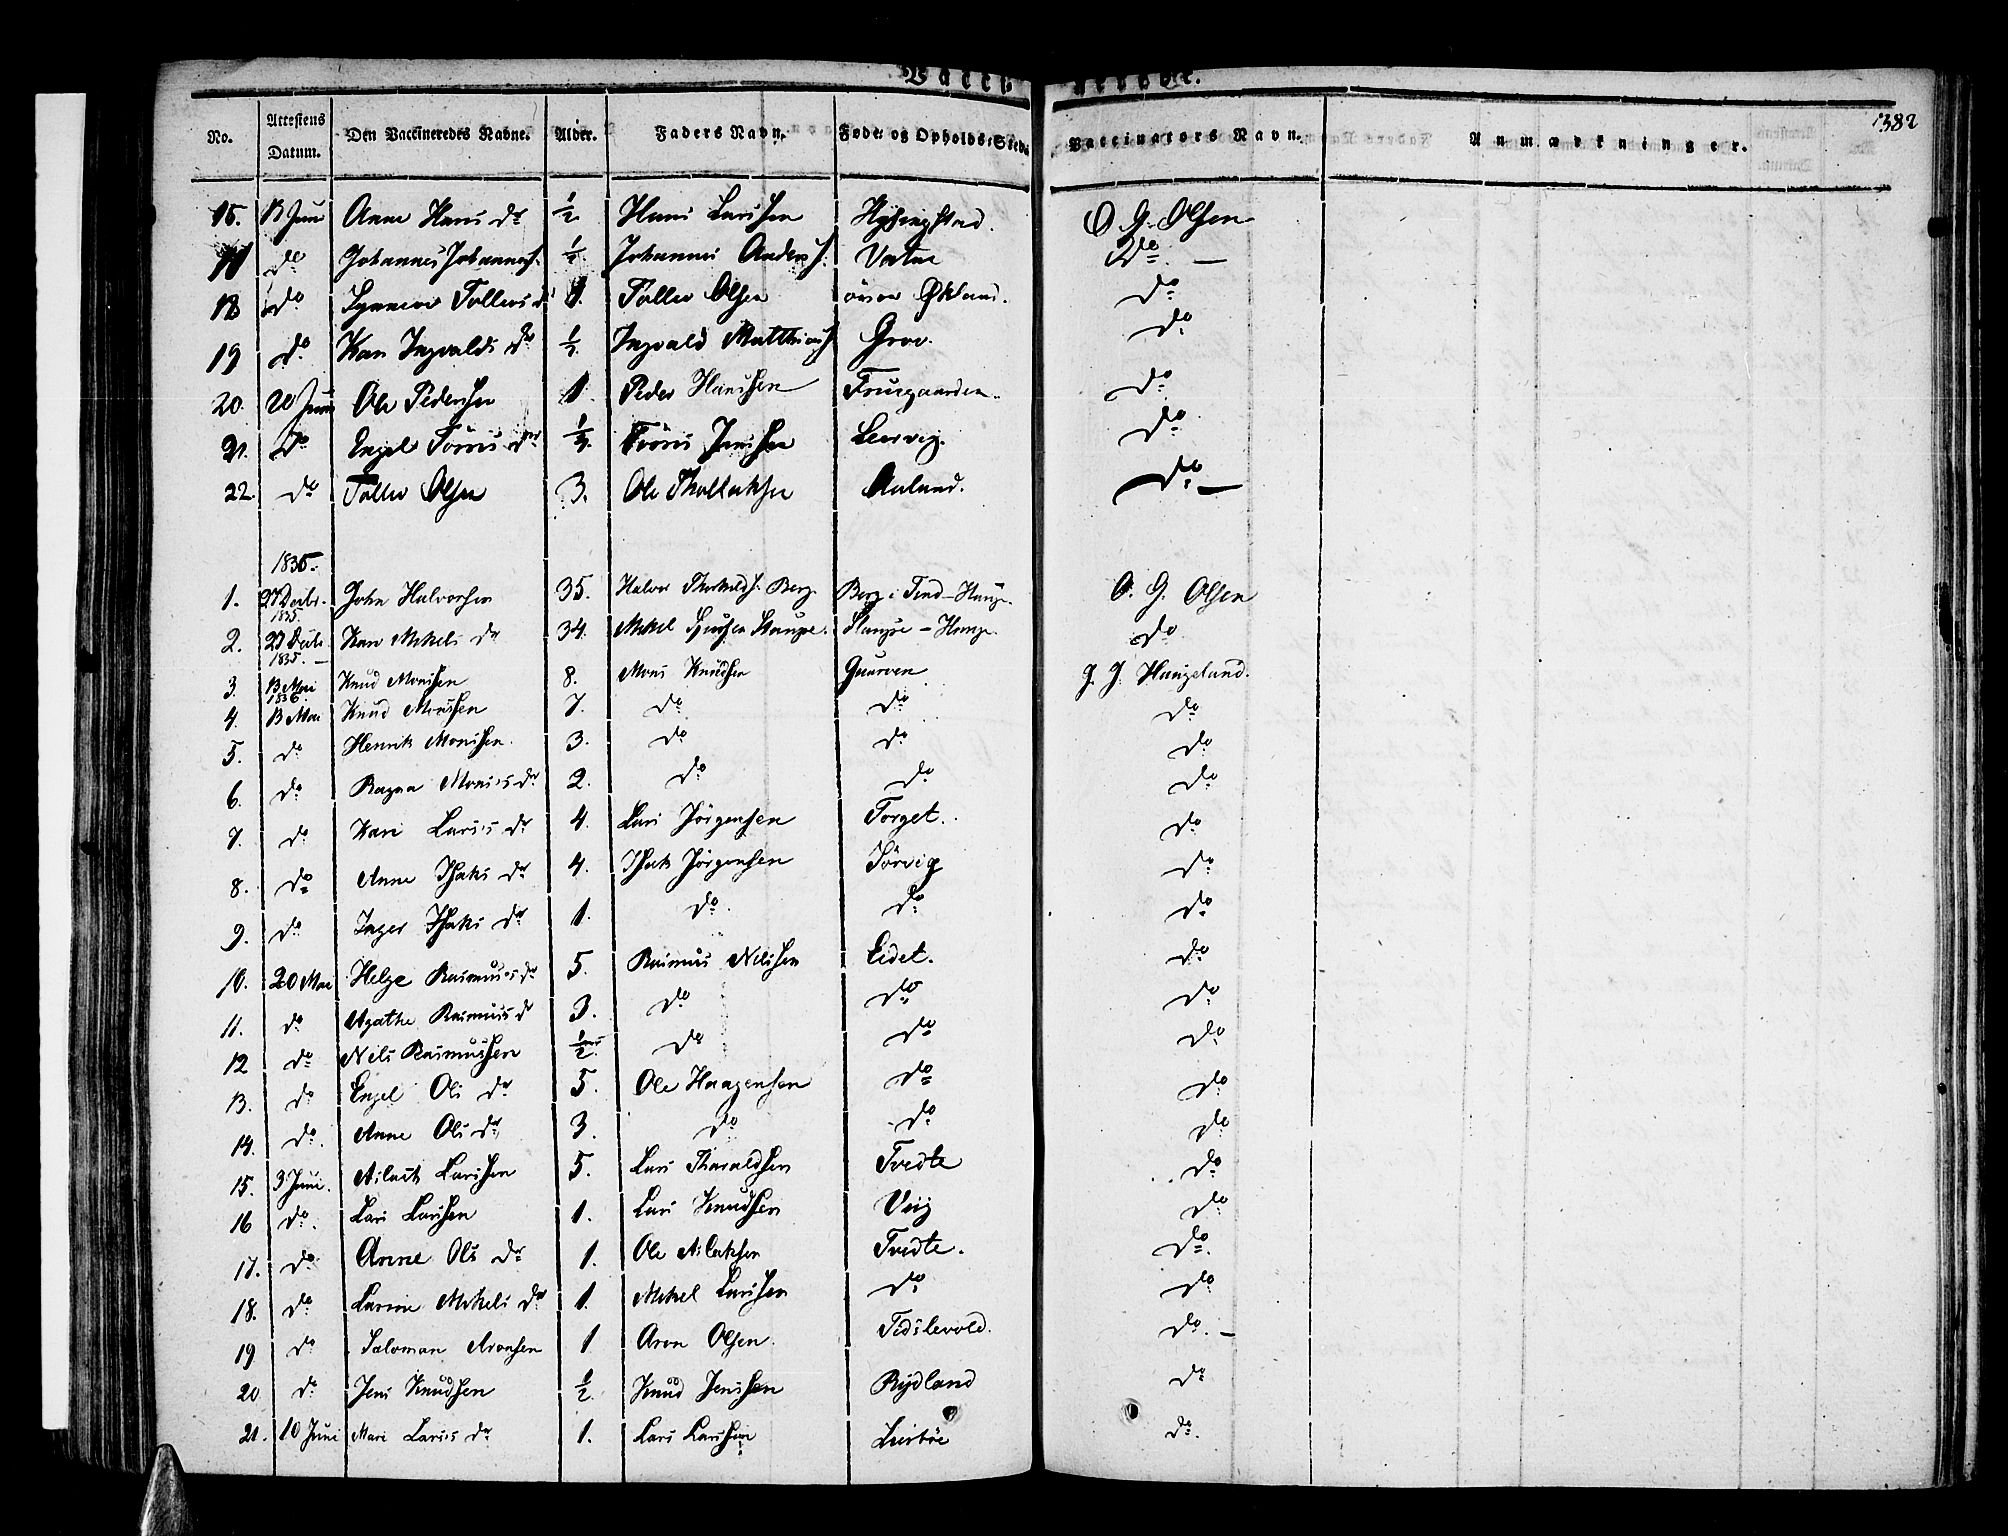 Vacci nerede.
382
No. Attestens Datum. Den Vaccineredes Navne. Alder. Faders Navn. Føde- og Opholds-Sted. Vaccinators Navn. Anmærkninger.
13 Juni Anne Hans Dr ½. Hans Larssen O. G. Olsen
do Johannes Johannes. ½. Johannes Anders. Vatne Do. —
18 do Tollevs d 1. Tollev Olsen Økland. do
19 do Kari Ingvalds dr ½. Ingvald Matthias Grov. do
20. 20 Juni Ole Pederssen 1. Peder Hanssen Fruegaarden. do
21. do Engel Tørris dr Tørris Jenssen Leervig. do
22. do Tollev Olsen 3. Ole Thollaksen Auland. do —
1835.
1. 27 Decbr. 1835. John Halvorsen 35. Halvor Berg. Berg i Tind – Hauge. O. G. Olsen
2. 27 Decbr. 1835. — Kari Mikels dr 34. Mikel Staupe. Staupe – Hauge. do
3. 13 Mai 1836 Knud Monssen 8. Mons Knudsen Guarven J. J. Haugeland.
4. 13 Mai Knud Monssen 7. do do do
5. do Henrik Monssen. 3. do do do
6. do Ragna Monses dr 2. do do do
7. do Kari Larses dr 4. Lars Jørgensen Torget. do
8. do Anne Isaks dr 4. Isak Jørgensen Sørvig do
9. do Inger Isaks dr 1. do do do
10. 20 Mai Helge Rasmuses dr 5. Rasmus Nilssen Eidet. do
11. do Agathe Rasmuses dr 3. do do do
12 do Nils Rasmussen ½. do do do
13. do Engel Ols dr 5. Ole Haagensen do do
14. do Anne Ols dr 3. do do do
15. 3 Juni. Larssen 5. Lars Tharaldsen Tvedte do
16 do Lars Larssen 1. Lars Knudsen Vig do
17. do Anne Ols dr 1. Ole Tvedte. do
18. do Mikels dr 1. Mikel Larssen do do
19 do Salomon Aronsen 1 Aron Olsen. Tidslevold. do. —
20 do Jens Knudsen ½ Knud Jenssen Rydland do
21. 10 Juni Mari Larses dr 1. Lars Larssen do.